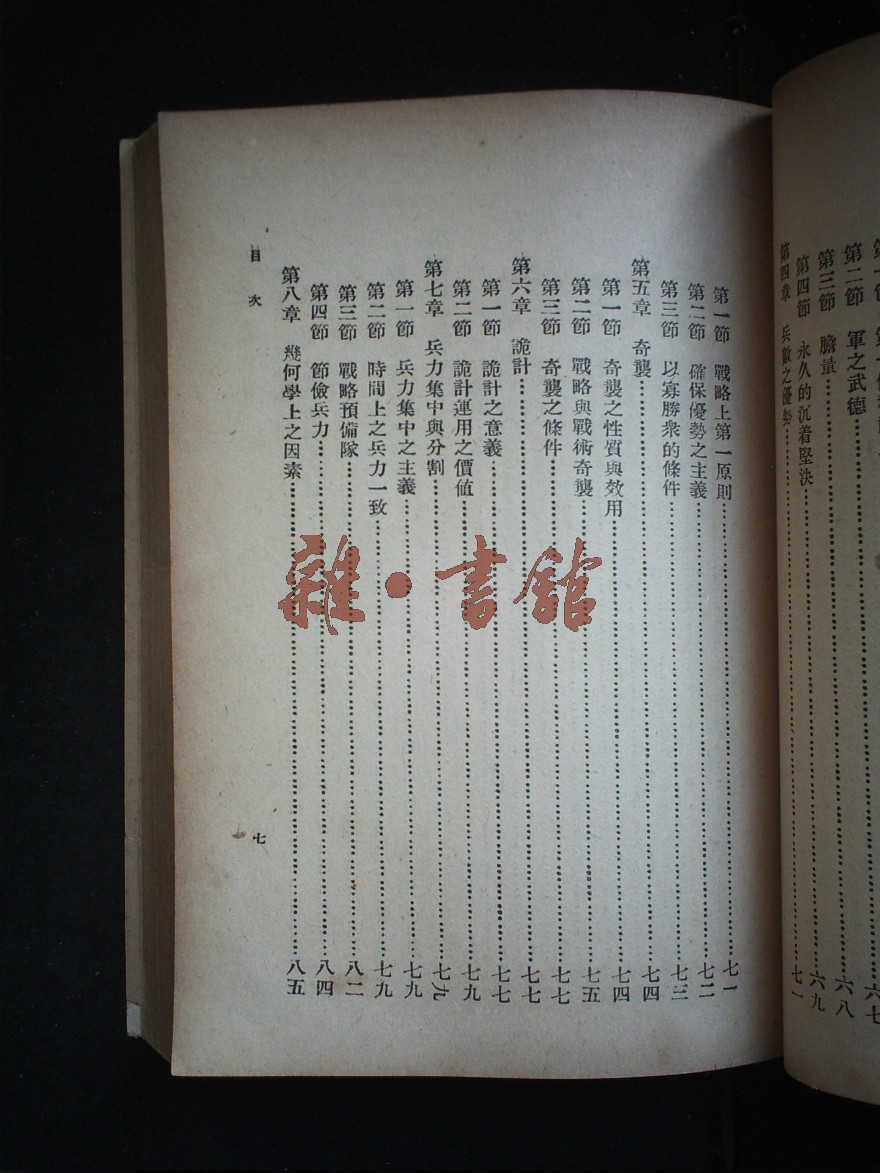 第二節　軍之武德……六八
第三節　膽量……六九
第四節　永久的沉着堅決
第四章　兵數之優勢……七一
第一節　戰略上第一原則……七一
第二節　確保優勢之主義……七二
第三節　以寡勝衆的條件……七三
第五章　奇襲……七四
第一節　奇襲之性質與效用……七四
第二節　戰略與戰術奇襲……七五
第三節　奇襲之條件……七七
第六章　詭計……七七
第一節　詭計之意義……七七
第二節　詭計運用之價値……七九
第七章　兵力集中與分割……七九
第一節　兵力集中之主義……七九
第二節　時間上之兵力一致……七九
第三節　戰略預備隊……八二
第四節　節儉兵力……八四
第八章　幾何學上之因素……八五
目次　七
雜·書館